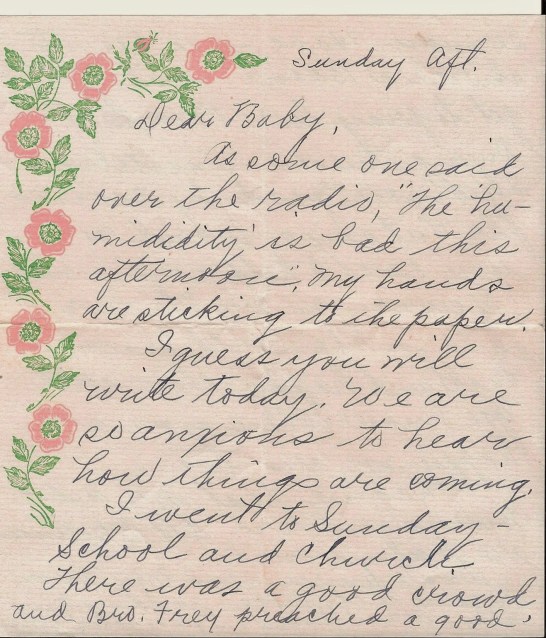 Sunday Aft.
Dear Baby,
As some one said
over the radio, "The 'hu-
mididity' is bad this
afternoon", my hands
are sticking to the paper.
I guess you will
write today. We are
so anxious to hear
how things are coming.
I went to Sunday-
School and Church.
There was a good crowd
and Bro. Frey preached a good